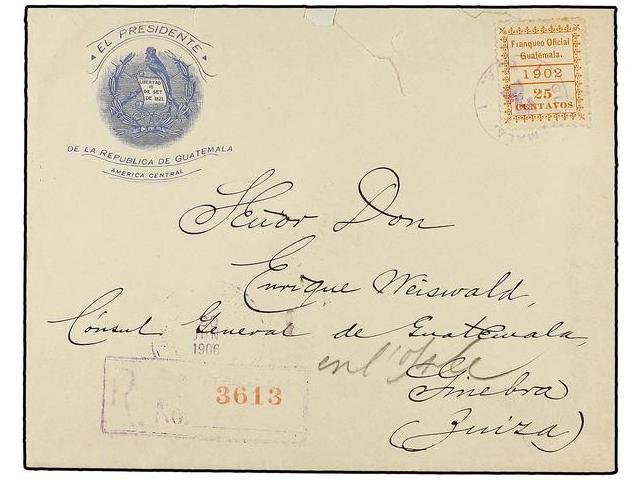 EL PRESIDENTE
LIBERTAD
15
DE SET.
DE 1821.
DE LA REPUBLICA DE GUATEMALA
AMERICA CENTRAL
Franqueo Oficial
Guatemala.
1902
25
CENTAVOS
Señor Don
Enrique Weiswald,
Cónsul General de Guatemala,
JUN
1906
Ginebra
(Zuiza)
R
No. 3613